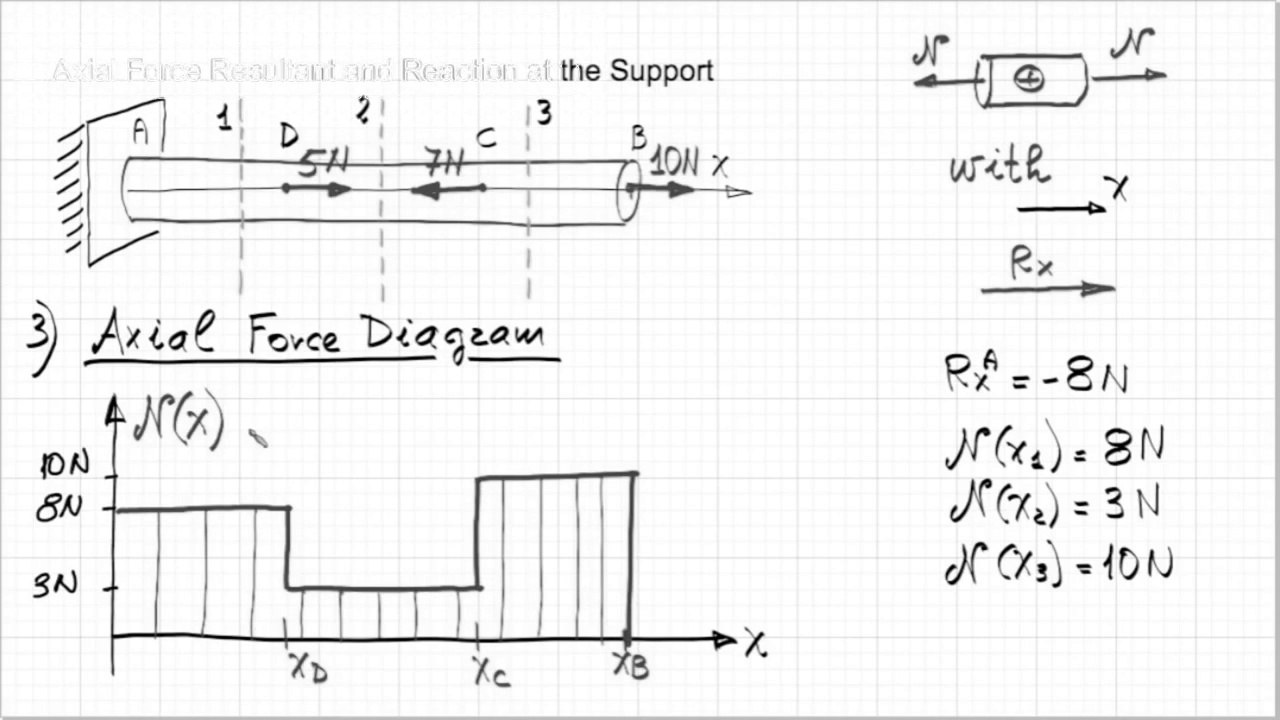 Axial Force Resultant and Reaction at the Support
A 1 D 2 C 3 B
5N 7N 10N x
3) Axial Force Diagram
N(x)
10N
8N
3N
xD xC xB x
N + N
with
x
Rx
RxA = -8N
N(x1) = 8N
N(x2) = 3N
N(x3) = 10N